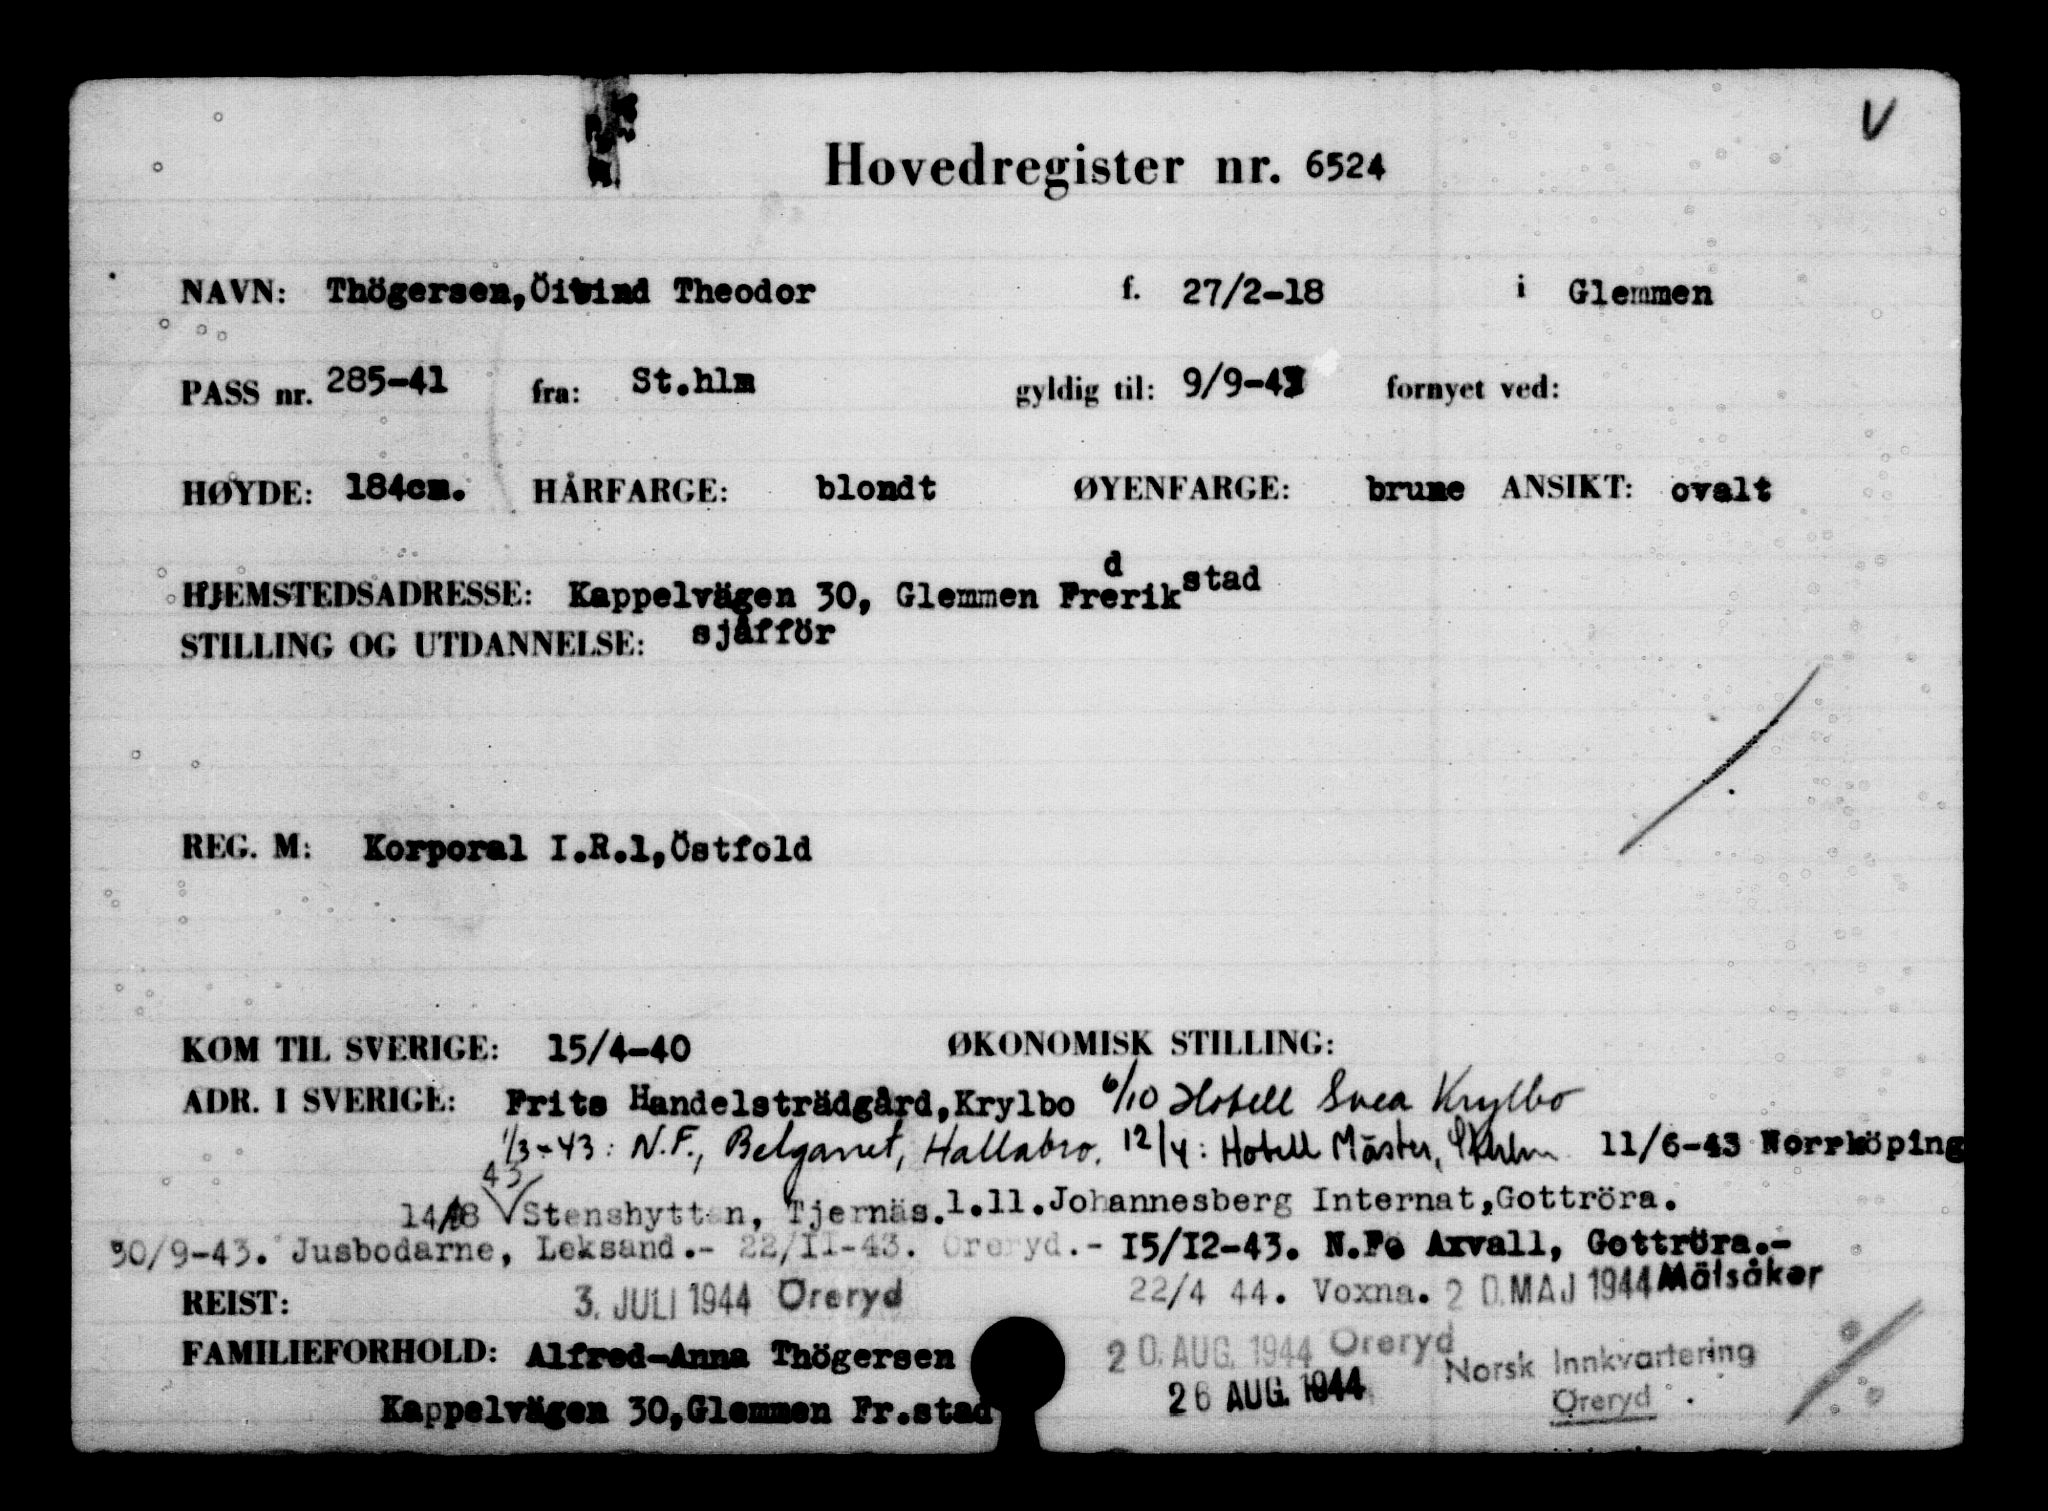 V
Hovedregister nr. 6524
NAVN: Thögersen,Öivind Theodor f. 27/2-18 i Glemmen
PASS nr. 285-41 fra: St.hlm gyldig til: 9/9-43 fornyet ved:
HØYDE: 184cm. HÅRFARGE: blondt ØYENFARGE: brune ANSIKT: ovalt
HJEMSTEDSADRESSE: Kappelvägen 30, Glemmen Frerikdstad
STILLING OG UTDANNELSE: sjåfför
REG. M: Korporal I.R.1,Östfold
KOM TIL SVERIGE: 15/4-40 ØKONOMISK STILLING:
ADR. I SVERIGE: Frits Handelsträdgård,Krylbo 6/10 Hotell Svea Krylbo
1/3-43: N.F., Belganet, Hallabro. 12/4: Hotell Mäster, Sthlm 11/6-43 Norrköping
43
14/8 Stenshyttan, Tjernäs. 1.11.Johannesberg Internat,Gottröra.
30/9-43. Jusbodarne, Leksand.- 22/11-43. Öreryd.- 15/12-43. N.F. Arvall, Gottröra.-
REIST: 3. JULI 1944 Öreryd 22/4 44. Voxna. 20. MAJ 1944 Mälsåker
FAMILIEFORHOLD: Alfred-Anna Thögersen 20. AUG. 1944 Öreryd
Kappelvägen 30,Glemmen Fr.stad 26 AUG. 1944 Norsk Innkvartering
Öreryd